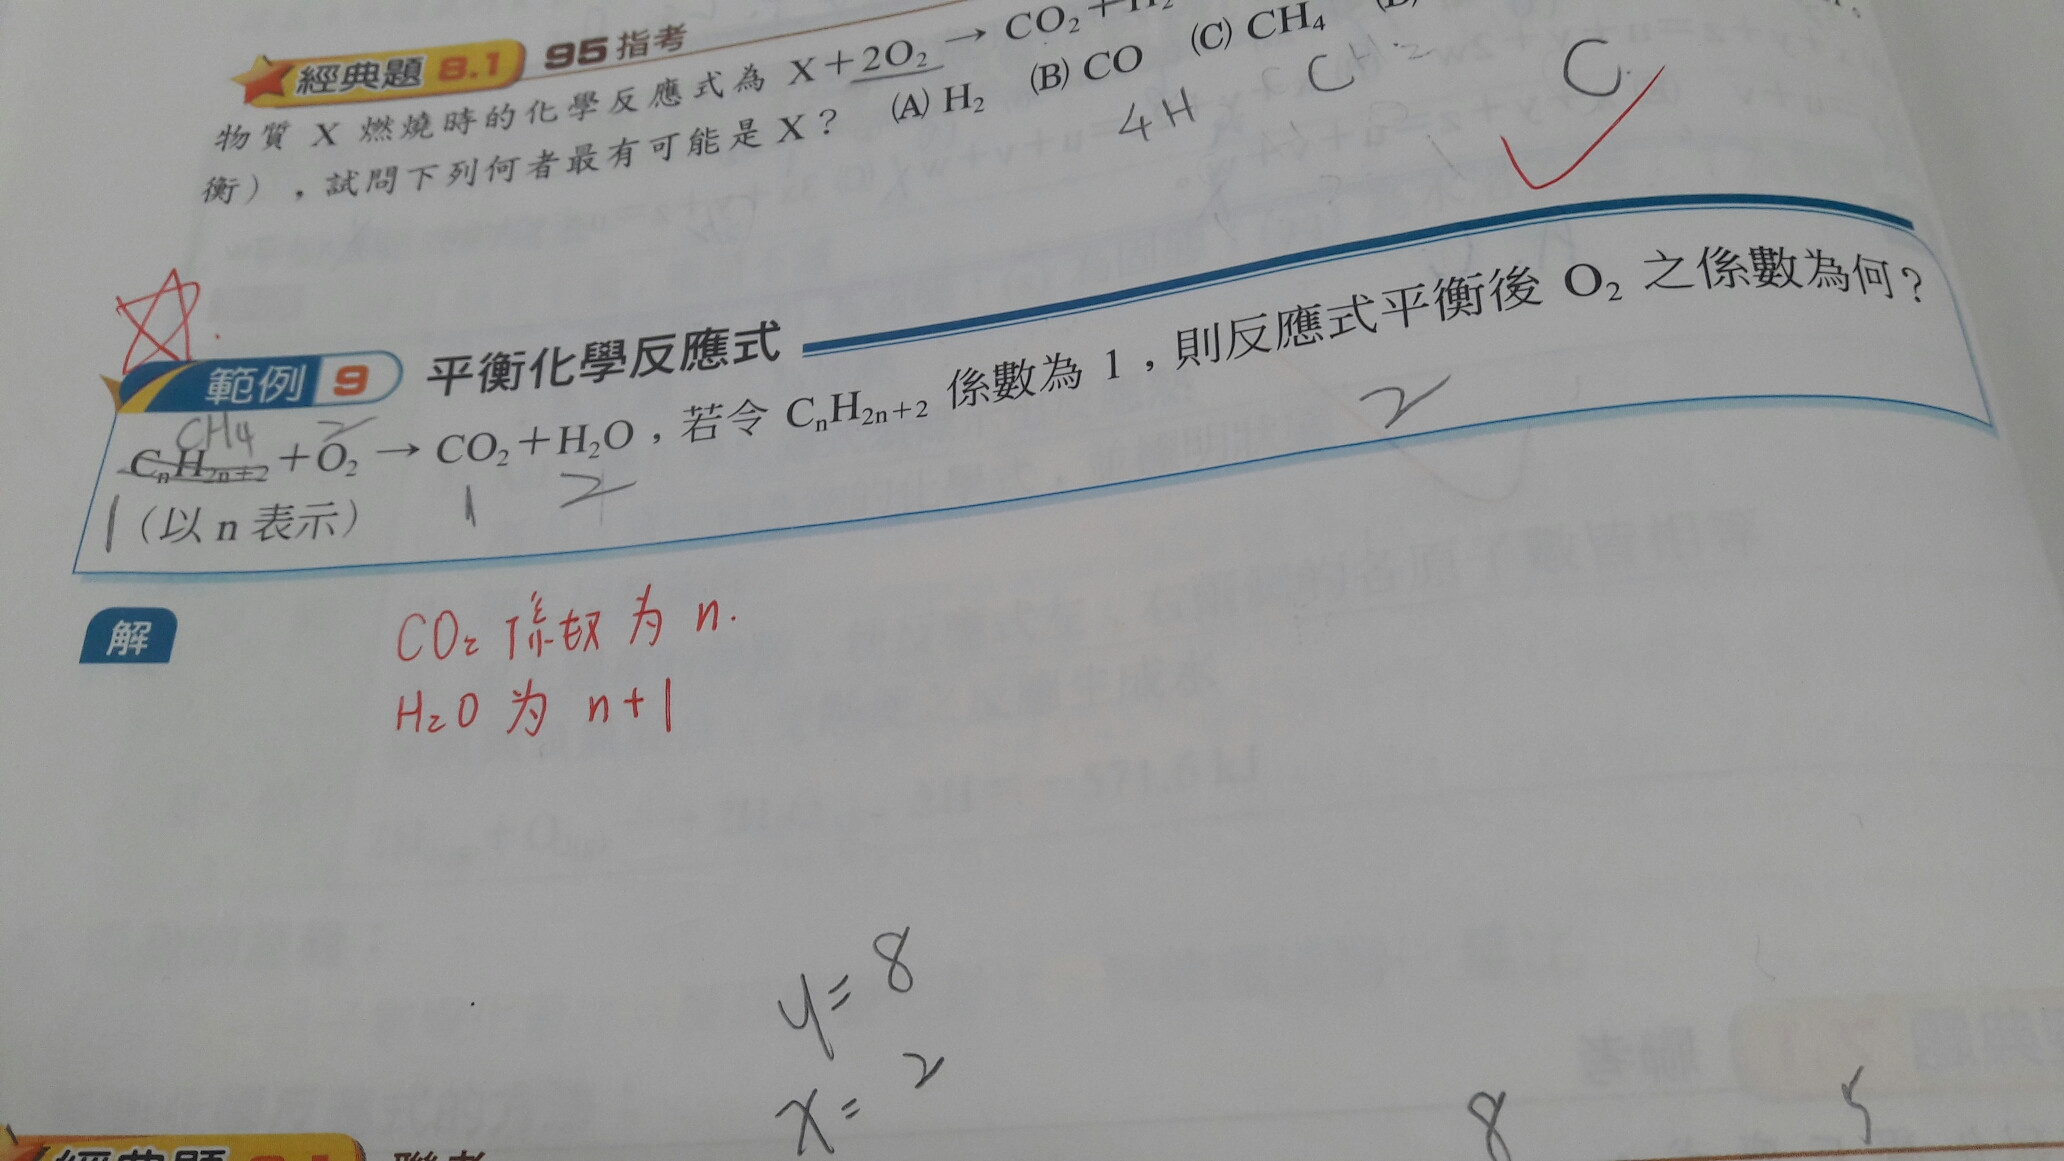 經典題 8.1 95指考
物質 X 燃燒時的化學反應式為 X+2O₂ → CO₂+H₂
衡），試問下列何者最有可能是 X？ (A) H₂ (B) CO (C) CH₄
4H CH C
範例 9 平衡化學反應式
CH₄ 2
CₙH₂ₙ₊₂+O₂ → CO₂+H₂O，若令 CₙH₂ₙ₊₂ 係數為 1，則反應式平衡後 O₂ 之係數為何？
1 (以 n 表示) 1 2 2
解
CO₂ 係数为 n.
H₂O 为 n+1
y=8
x=2
8 5
經典題 聯考